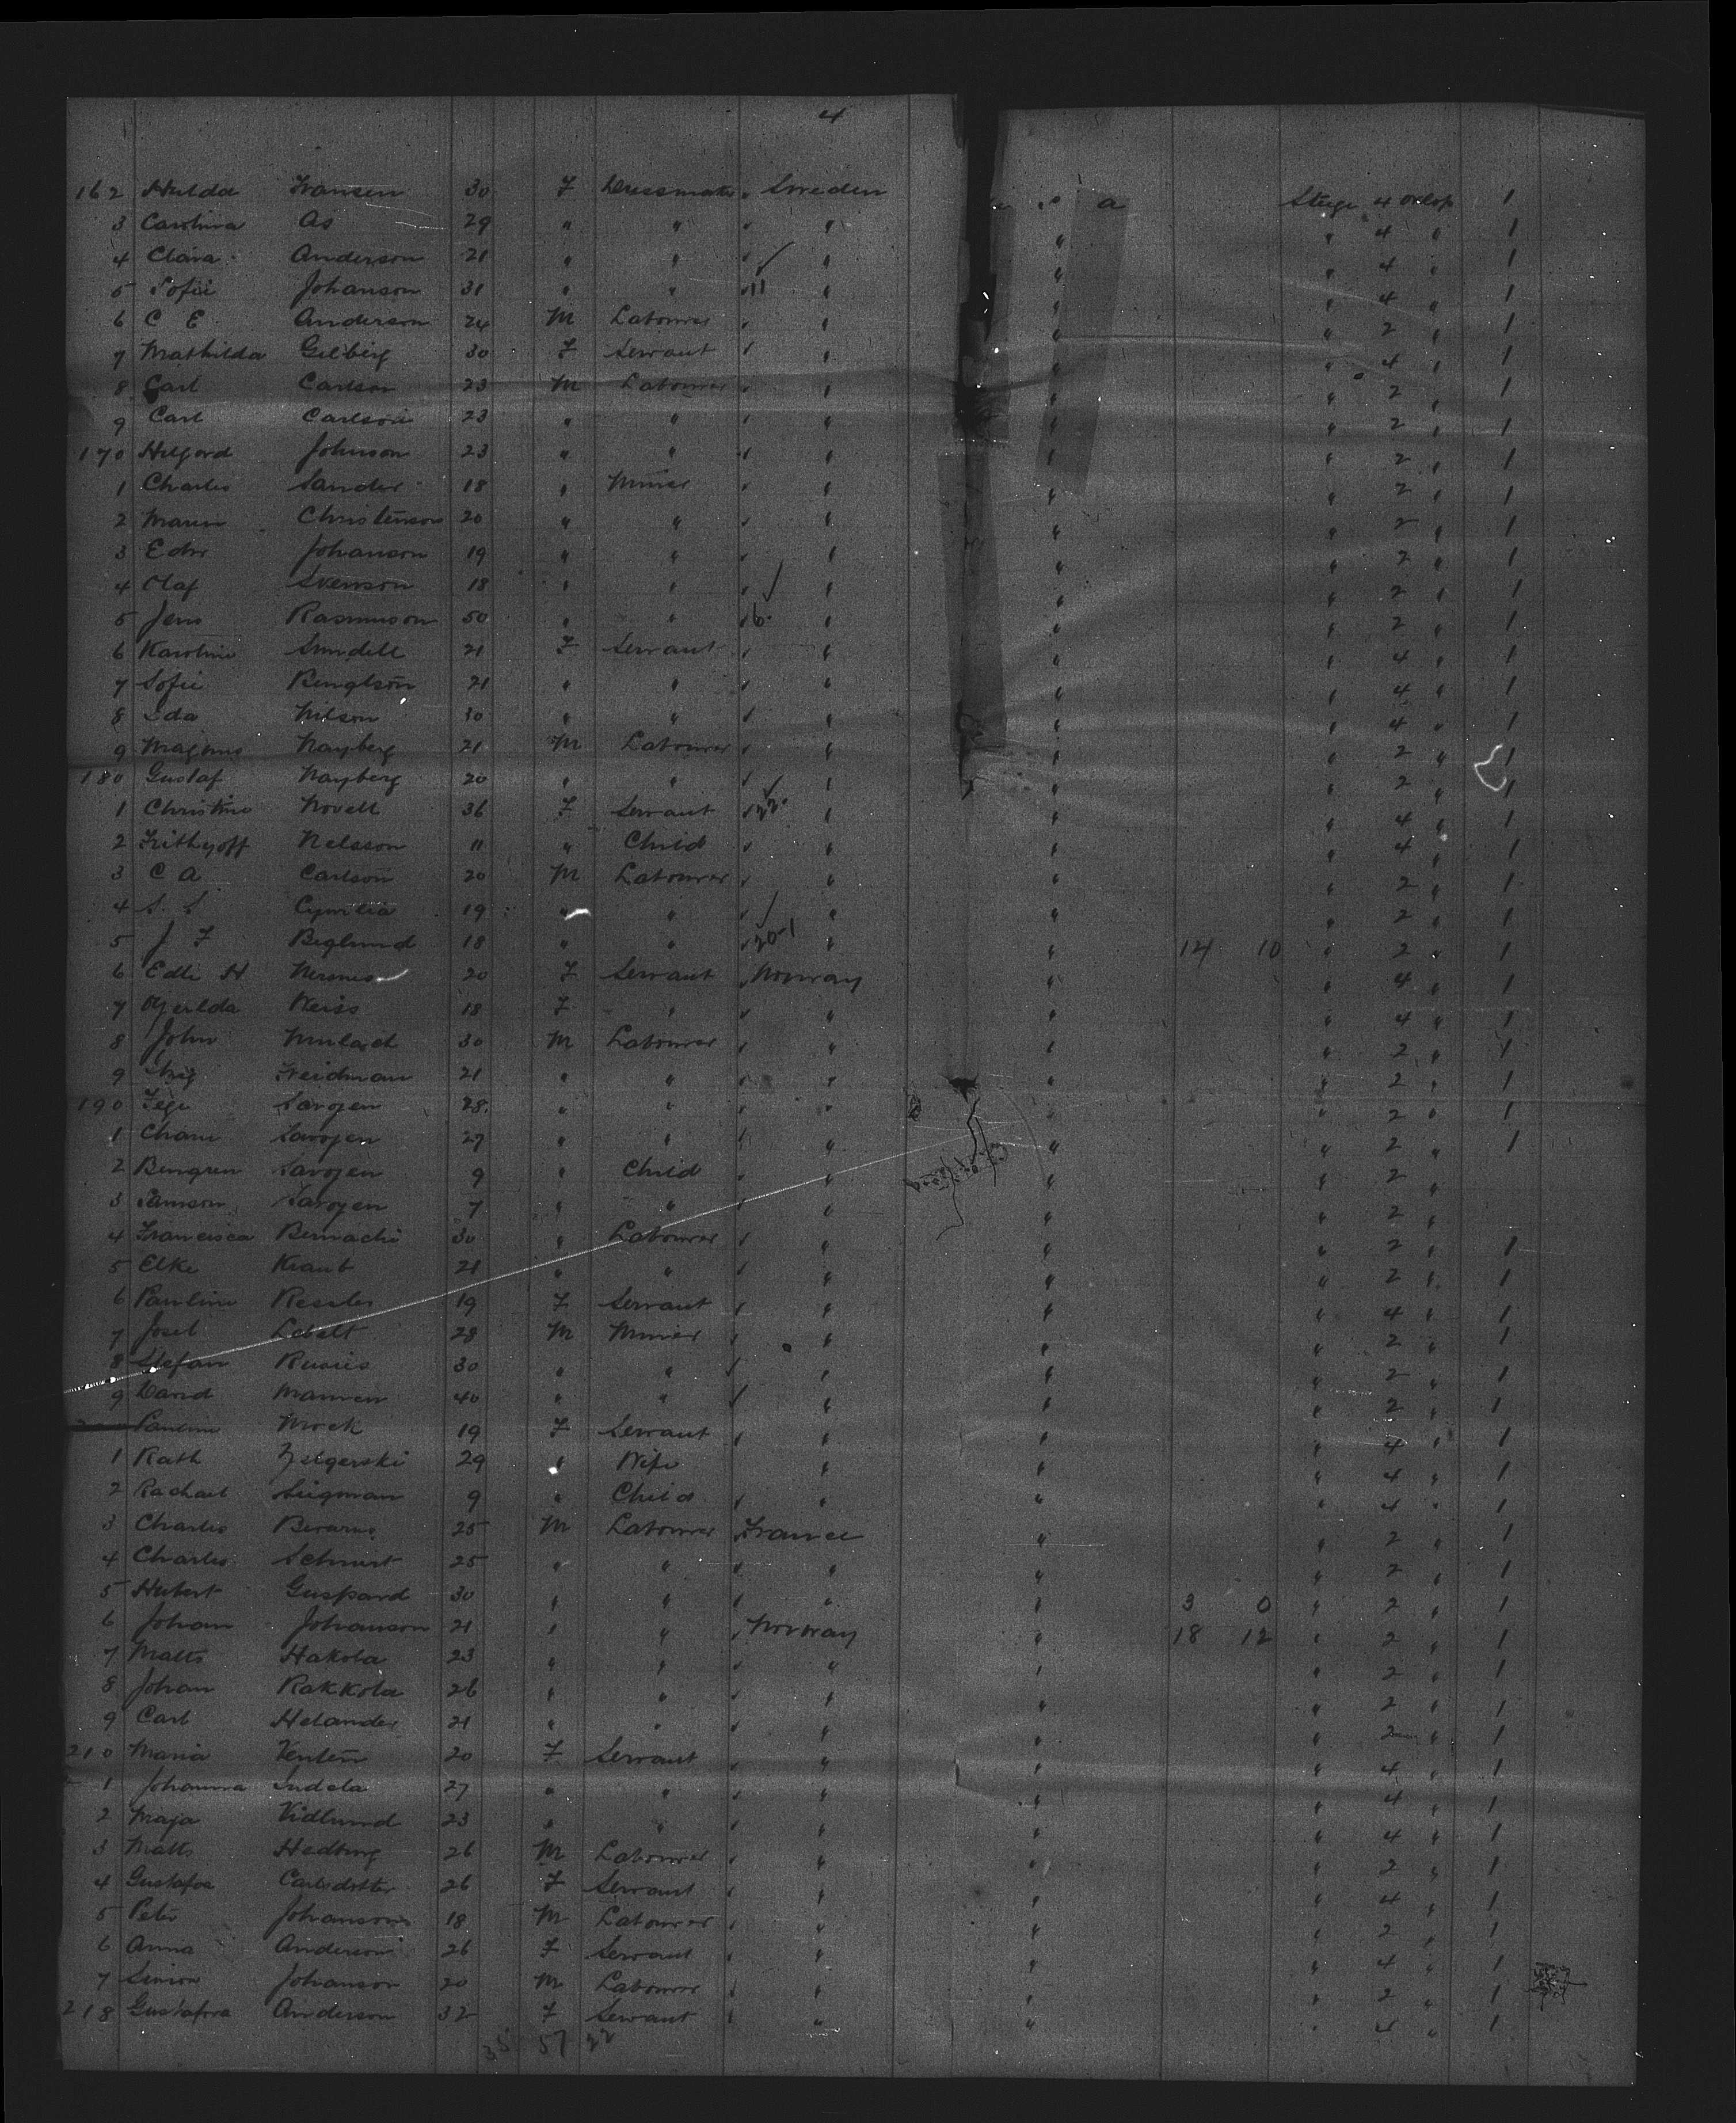 4
162 Hulda Fransen 30 F Dressmaker " Sweden " " a Steige 4 orlop 1
3 Carolina As 29 " " " " " " 4 " 1
4 Clara Anderson 21 " " " " " " 4 " 1
5 Sofie Johanson 31 " " " 11 " " " 4 " 1
6 C E Anderson 24 M Labourer " " " " 2 " 1
7 Mathilda Gelberg 30 F Servant " " " " 4 " 1
8 Carl Carlson 23 M Labourer " " " " 2 " 1
9 Carl Carlson 23 " " " " " " 2 " 1
170 Helgord Johnson 23 " " " " " " 2 " 1
1 Charles Sander 18 " Miner " " " " 2 " 1
2 Christenson 20 " " " " " " 2 " 1
3 Johanson 19 " " " " " " 2 " 1
4 Olaf Svenson 18 " " " " " " 2 " 1
5 Jens Rasmuson 50 " " " 16 " " " 2 " 1
6 Karoline Sundell 21 F Servant " " " " 4 " 1
7 Sofie Bengtson 21 " " " " " " 4 " 1
8 Ida Nilson 30 " " " " " " 4 " 1
9 Magnus Nayberg 21 M Labourer " " " " 2 " 1
180 Gustaf Nayberg 20 " " " " " " 2 " 1
1 Christine Novell 36 F Servant " 22 " " " 4 " 1
2 Frithyoff Nelsson 11 " Child " " " " 4 " 1
3 C A Carlson 20 M Labourer " " " " 2 " 1
4 S. S 19 " " " " " " 2 " 1
5 J F Beglund 18 " " " 20-1 " " 14 10 " 2 " 1
6 Edle H 20 F Servant " Norway " " 4 " 1
7 Weiss 18 F " " " " " 4 " 1
8 John 30 M Labourer " " " " 2 " 1
9 Freidman 21 " " " " " " 2 " 1
190 Fege Savojen 28 " " " " " " 2 " 1
1 Savojen 27 " " " " " " 2 " 1
2 Savojen 9 " Child " " " " 2 "
3 Samson Savojen 7 " " " " " " 2 "
4 Francisca Bernachi 30 " Labourer " " " " 2 " 1
5 Elke Kraut 21 " " " " " " 2 " 1
6 Pauline Ressler 19 F Servant " " " " 4 " 1
7 Josel Lebelt 28 M Miner " " " " 2 " 1
8 Stefan 30 " " " " " " 2 " 1
9 David 40 " " " " " " 2 " 1
Pauline Mock 19 F Servant " " " " 4 " 1
1 Rath 29 " Wife " " " 4 " 1
2 Rachael Sugman 9 " Child " " " " 4 " 1
3 Charles 25 M Labourer " France " " 2 " 1
4 Charles 25 " " " " " " 2 " 1
5 Hubert Guspard 30 " " " " " 3 0 " 2 " 1
6 Johan Johanson 21 " " " Norway " 18 12 " 2 " 1
7 Matts Hakola 23 " " " " " " 2 " 1
8 Johan Rakkola 26 " " " " " " 2 " 1
9 Carl Helander 21 " " " " " " 2 " 1
210 Maria 20 F Servant " " " " 4 " 1
1 Johanna Indela 27 " " " " " " 4 " 1
2 Maja Vidlund 23 " " " " " " 4 " 1
3 Matts Hedberg 26 M Labourer " " " " 2 " 1
4 Gustafva Carlsdotter 26 F Servant " " " " 4 " 1
5 Peter Johanson 18 M Labourer " " " " 2 " 1
6 Anna Anderson 26 F Servant " " " " 4 " 1
7 Simon Johanson 20 M Labourer " " " " 2 " 1
218 Gustafva Anderson 32 F Servant " " " " 4 " 1
35 57 22